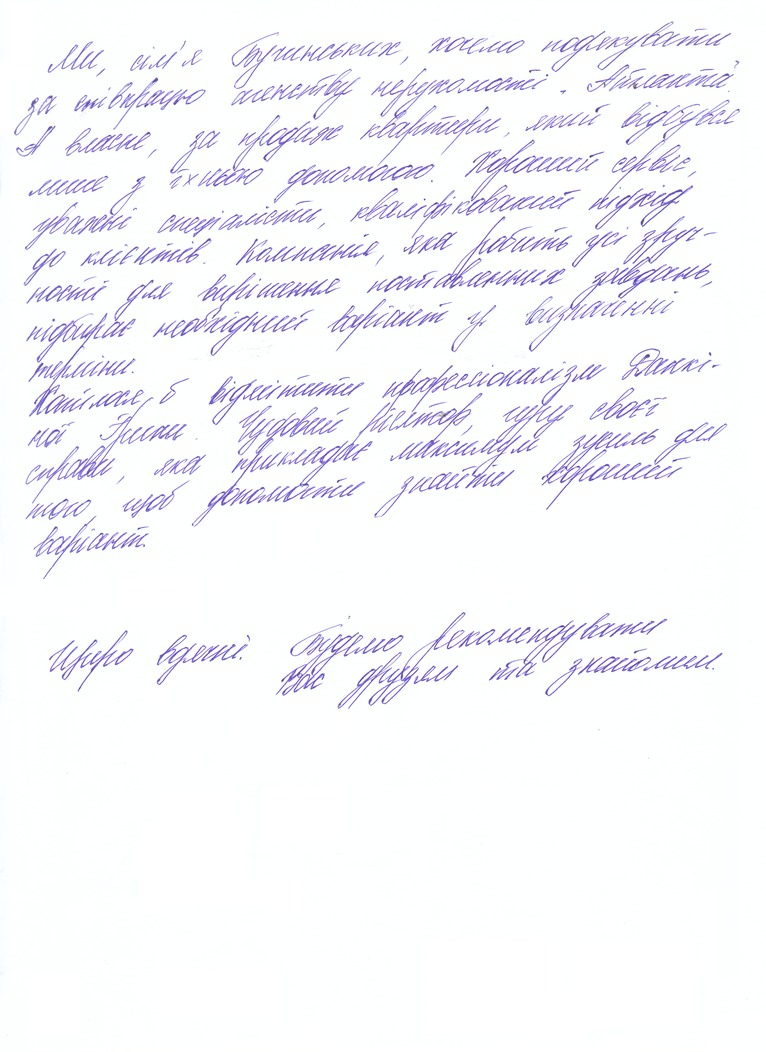 Ми, сім'я Бучинських, хочемо подякувати
за співпрацю агенству нерухомості „Атланта"
А власне, за продаж квартири, який відбувся
лише з їхньою допомогою. Хороший сервіс,
уважні спеціалісти, кваліфікований підхід
до клієнтів. Компанія, яка робить усі зруч-
ності для вирішення поставленних завдань,
підбирає необхідний варіант у визначенні
терміни.
Хотілося б відмітити професіоналізм
ної Ірини. Чудовий рієлтор, гуру своєї
справи, яка прикладає максимум зусиль для
того, щоб допомогти знайти хороший
варіант.
Щиро вдячні. Будемо рекомендувати
Вас друзям та знайомим.